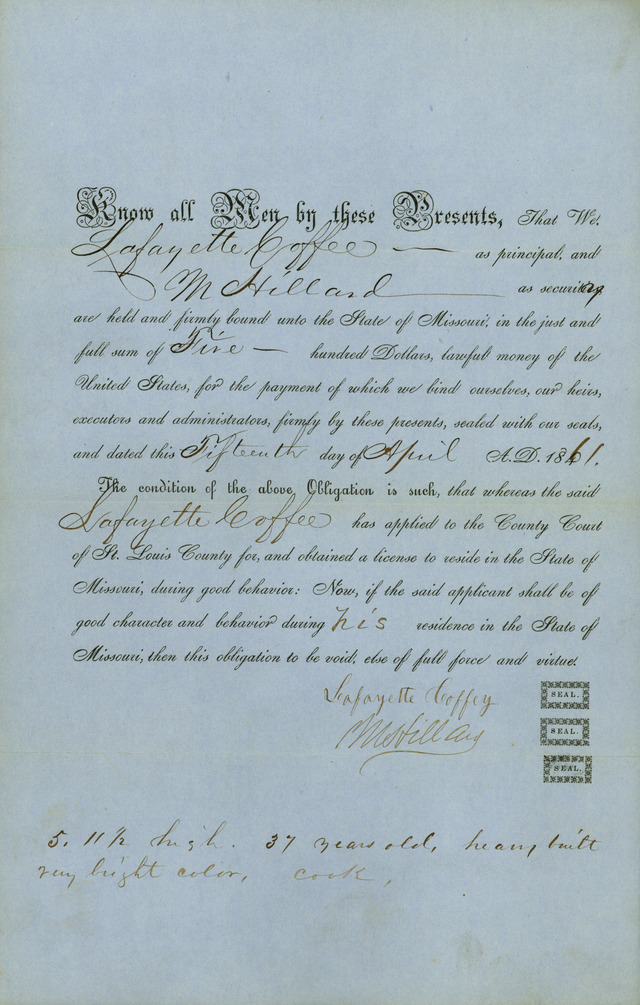 Know all Men by these Presents, That We,
Lafayette Coffee — as principal, and
M Hillard as security
are held and firmly bound unto the State of Missouri, in the just and
full sum of Five — hundred Dollars, lawful money of the
United States, for the payment of which we bind ourselves, our heirs,
executors and administrators, firmly by these presents, sealed with our seals,
and dated this Fifteenth day of April A.D. 1861.
The condition of the above Obligation is such, that whereas the said
Lafayette Coffee has applied to the County Court
of St. Louis County for, and obtained a license to reside in the State of
Missouri, during good behavior: Now, if the said applicant shall be of
good character and behavior during his residence in the State of
Missouri, then this obligation to be void, else of full force and virtue.
Lafayette Coffey SEAL.
M Hillard SEAL.
SEAL.
5. 11 1/2 high. 37 years old, heavy built
very bright color, cook,